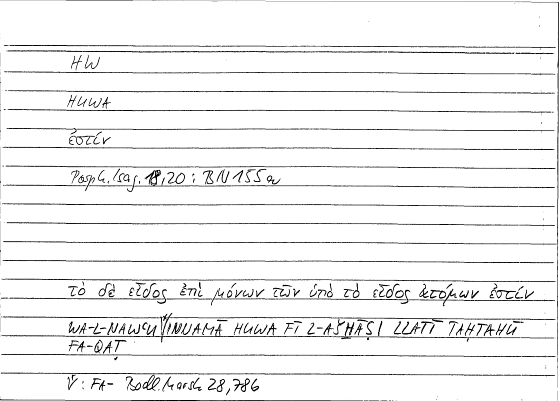 HW
HUWA
ἐστίν
Porph. Isag. 18,20 : BN 155a
τὸ δὲ εἶδος ἐπὶ μόνων τῶν ὑπὸ τὸ εἶδος ἀτόμων ἐστίν
WA-L-NAWʿU INNAMĀ HUWA FĪ L-AŠḪĀṢI LLATĪ TAḤTAHŪ
FA-QAṬ
V : FA- Bodl. Marsh 28,786